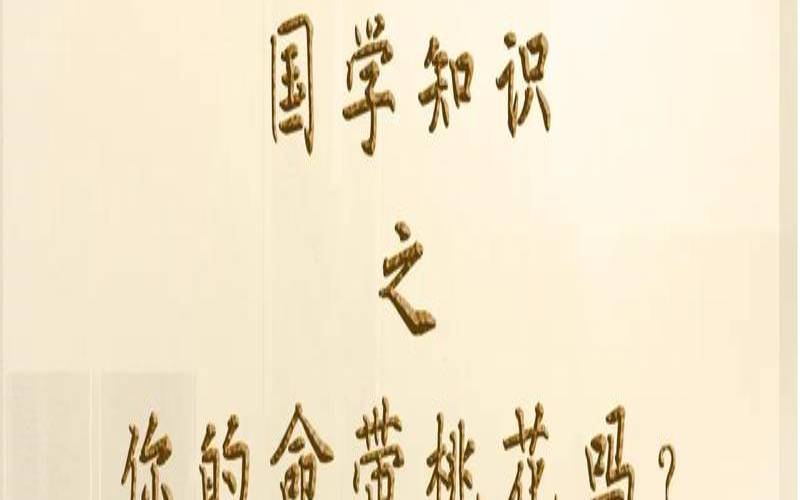 国学知识
之
你的命带桃花吗?